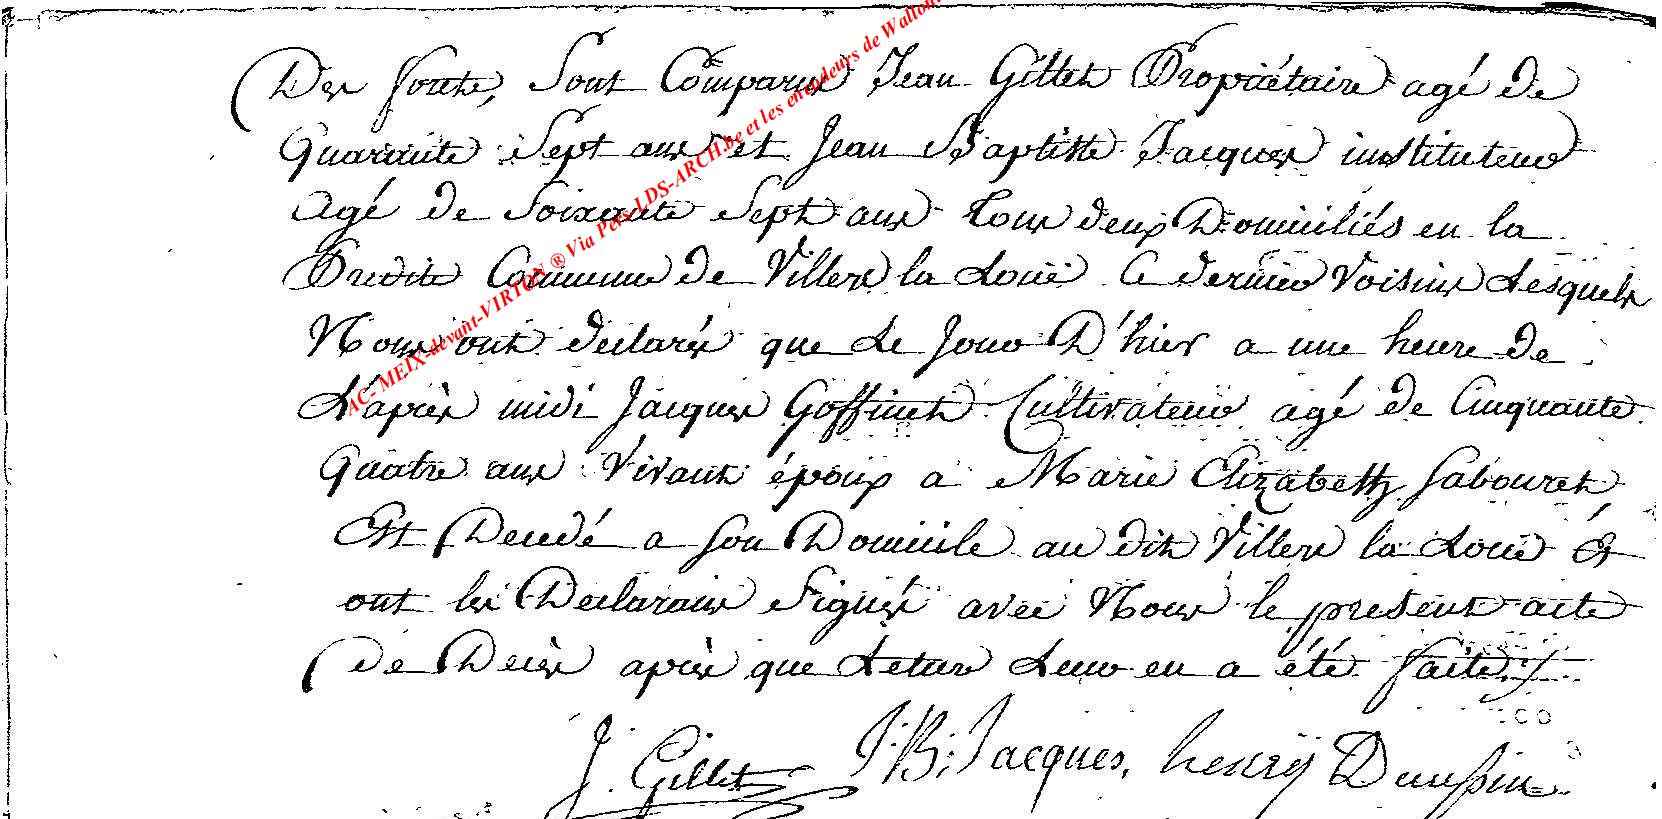 Des forets, Sont Comparus Jean Gillet Propriétaire agé de
Quarante Sept ans et Jean Baptiste Jacques instituteur
agé de Soixante Sept ans tous deux Domiciliés en la
Predite Commune de Villers la Loüe Ce dernier Voisin Lesquels
Nous ont declarés que Le Jour D'hier a une heure de
L'après midi Jacques Goffinet Cultivateur agé de Cinquante
Quatre ans Vivant époux a Marie Elizabeth Sabouret,
Est Decedé a son Domicile au dit Villers la Loüe Et
ont les Declarans Signés avec Nous le present acte
de Decès après que Lecture Leur en a été faite ./.
J. Gillet J: B: Jacques, henry
AC- MEIX-devant-VIRTON ® Via Pers-LDS-ARCH.be et les encodeurs de Wallon